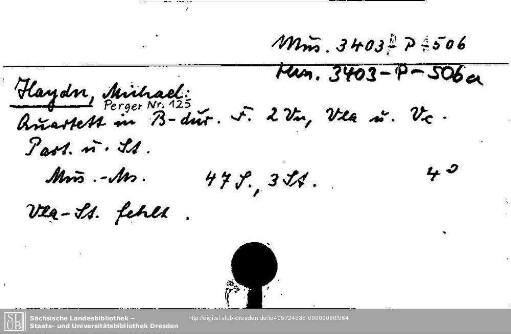 Mus. 3403-P-506
Mus. 3403-P-506a
Haydn, Michael:
Perger Nr. 125
Quartett in B-dur. F. 2 Vn, Vla u. Vc.
Part. u. St.
Mus.-Ms. 47 S., 3 St. 4°
Vla-St. fehlt.
SLUB
Sächsische Landesbibliothek –
Staats- und Universitätsbibliothek Dresden